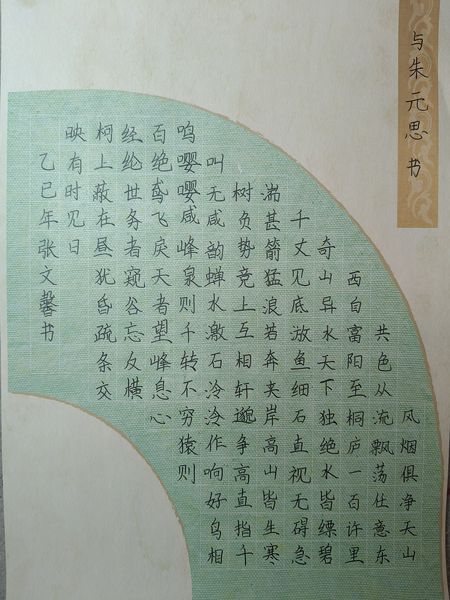 与朱元思书
风烟俱净天山
共色从流飘荡任意东
西自富阳至桐庐一百许里
奇山异水天下独绝水皆缥碧
千丈见底放鱼细石直视无碍急
湍甚箭猛浪若奔夹岸高山皆生寒
树负势竞上互相轩邈争高直指千
叫无咸韵蝉水激石泠泠作响好鸟相
鸣嘤嘤咸峰泉则千转不穷猿则
百绝鸢飞戾天者望峰息心
经纶世务者窥谷忘反横
柯上蔽在昼犹昏疏条交
映有时见日
乙巳年张文馨书